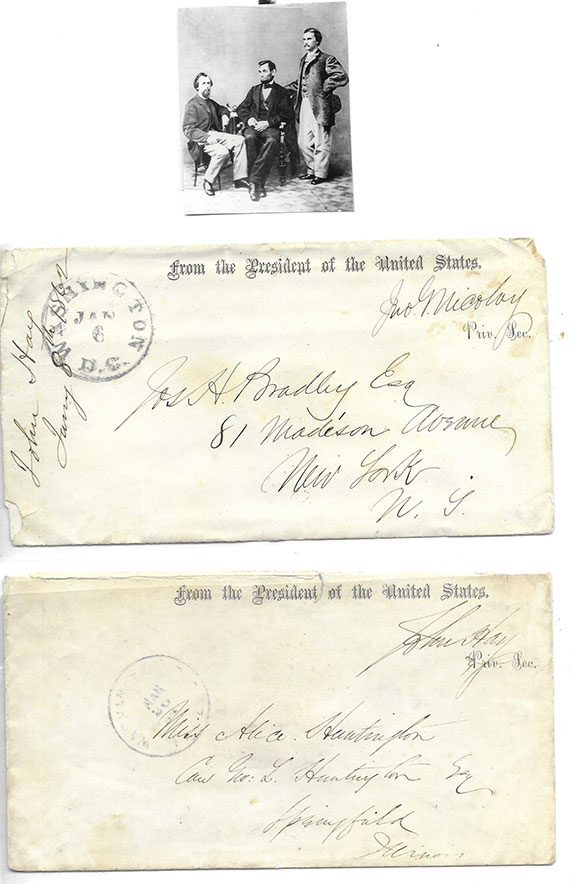 From the President of the United States.
Jno. G. Nicolay
Priv. Sec.
WASHINGTON D.C.
JAN
6
John Hay
Jany 8th 1862
Jos H. Bradley Esq
81 Madison Avenue
New York
N. Y.
From the President of the United States.
John Hay
Priv. Sec.
MAR
Miss Alice Huntington
Care Geo: L. Huntington Esq
Springfield
Illinois